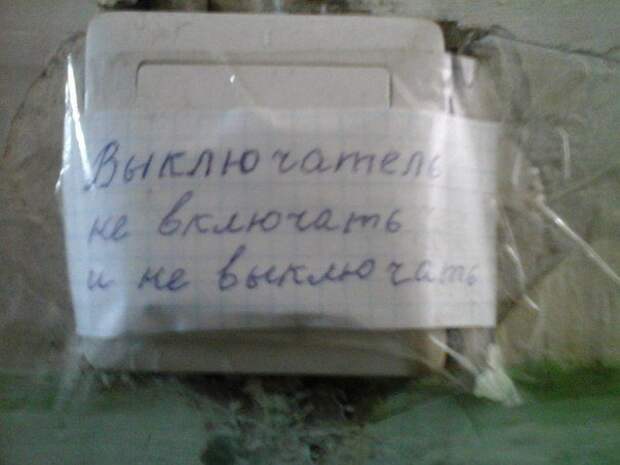 Выключатель
не включать
и не выключать